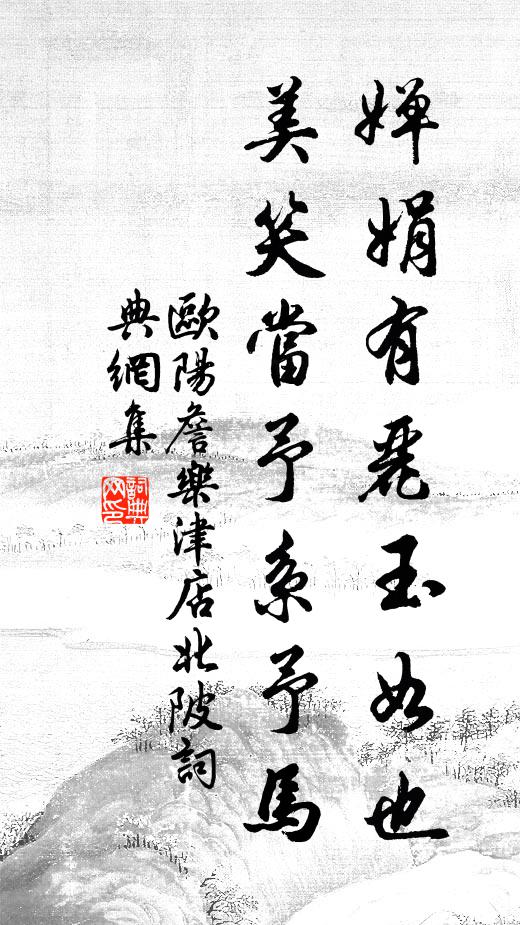 嬋娟有麗玉如也
美笑當予系予馬
歐陽詹樂津店北陂詞
典網集
詞典网印